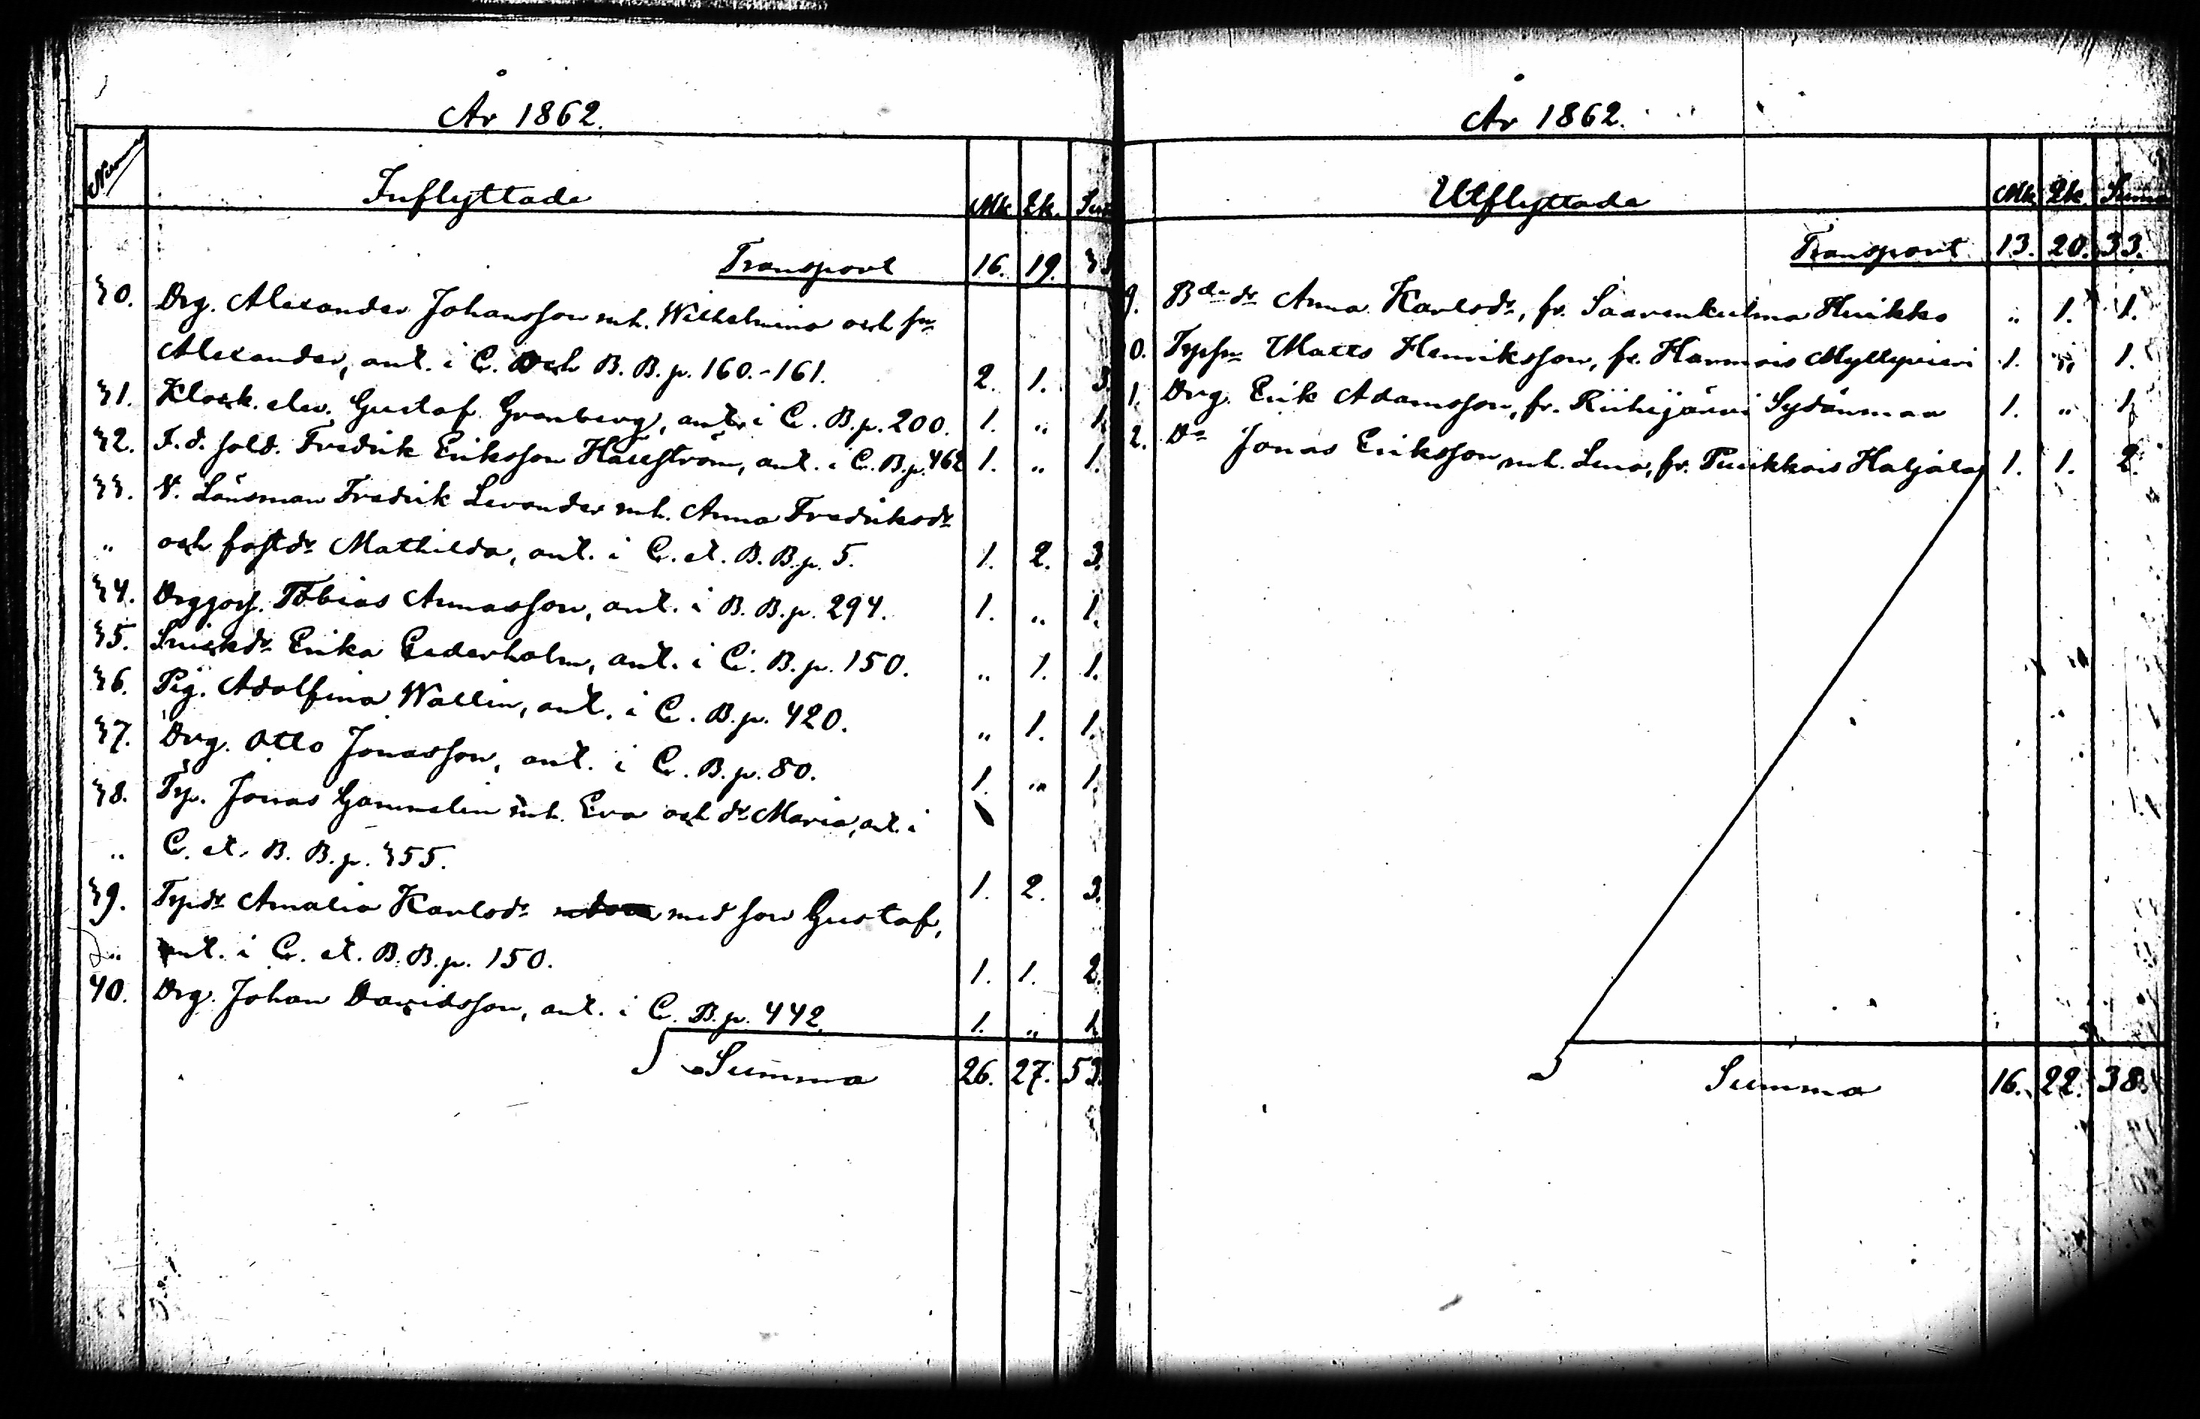 År 1862.
Numro
Inflyttade
Mk. Qk. Sum
Transport 16. 19. 35
30. Drg. Alexander Johansson mh. Wilhelmina och sn
Alexander, ant. i C. och B. B. p. 160.-161. 2. 1. 3.
31. Klock. elev. Gustaf Granberg, ant. i C. B. p. 200. 1. " 1.
32. F. d. sold. Fredrik Eriksson Hällström, ant. i C. B. p. 462 1. " 1.
33. V. Länsman Fredrik Levander mh. Anna Fredriksdr
" och fostdr Mathilda, ant. i C. et. B. B. p. 5. 1. 2. 3.
34. Drggoss. Tobias Annasson, ant. i B. B. p. 294. 1. " 1.
35. Snickdr Erika Cederholm, ant. i C. B. p. 150. " 1. 1.
36. Pig. Adolfina Wallin, ant. i C. B. p. 420. " 1. 1.
37. Drg. Otto Jonasson, ant. i C. B. p. 80. 1. " 1.
38. Tp. Jonas Gammelin mh. Eva och dr Maria, ant. i
" C. et. B. B. p. 355. 1. 2. 3.
39. Tpdr Amalia Karlsdr med son Gustaf,
" ant. i C. et. B. B. p. 150. 1. 1. 2.
40. Drg. Johan Davidsson, ant. i C. B. p. 442. 1. " 1.
Summa 26. 27. 53.
År 1862.
Utflyttade
Mk Qk. Summa
Transport 13. 20. 33.
9. Bdedr Anna Karlsdr, fr. Saarenkulma Heikko " 1. 1.
0. Tpsn Matts Henriksson, fr. Hannois Myllyrieri 1. " 1.
1. Drg. Erik Adamsson, fr. Riihijärvi Sydänmaa 1. " 1.
2. Do Jonas Eriksson mh. Lena, fr. Haljala 1. 1. 2.
Summa 16. 22. 38.